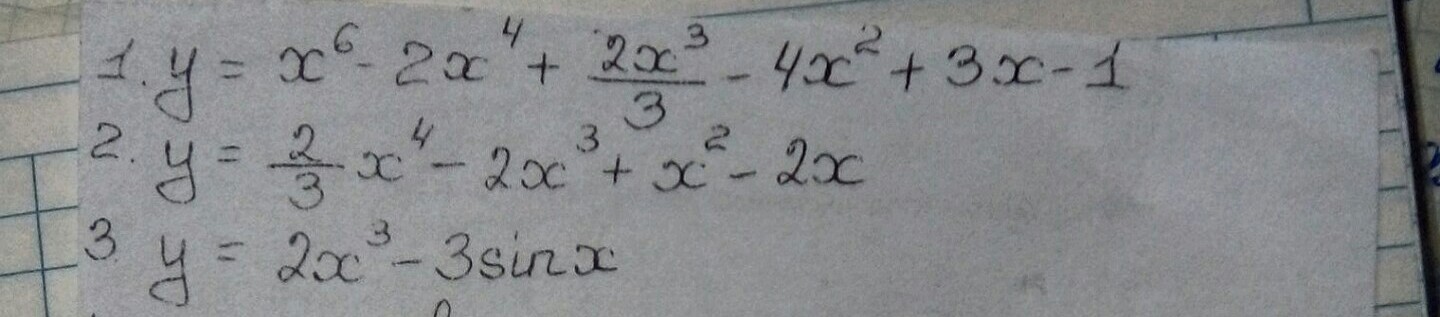 1. y = x⁶ - 2x⁴ + 2x³/3 - 4x² + 3x - 1
2. y = 2/3 x⁴ - 2x³ + x² - 2x
3 y = 2x³ - 3sinx